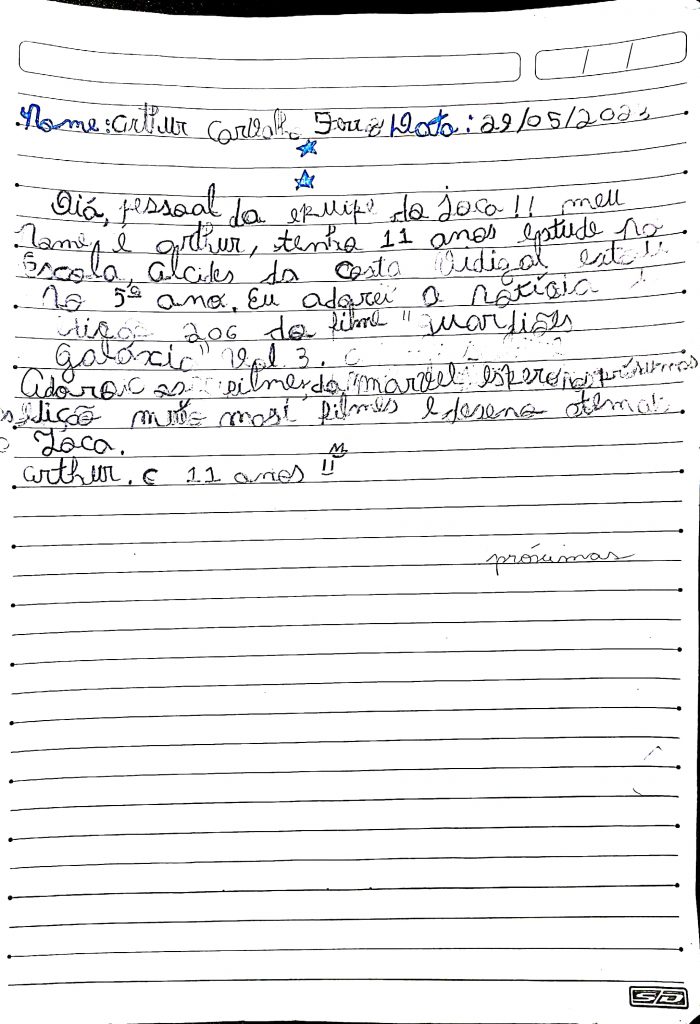 Nome: Arthur Carvalho Ferraz Data: 29/05/2023
Oiá, pessoal da equipe do Joca!! meu
nome é arthur, tenho 11 anos estude no
Escola, Alcides da Costa Vidigal esto
no 5º ano. Eu adorei a nótícia
206 do filme "Guardiões
Galáxia" Vol 3.
Adoro os filmes da "marvel" espero nas présimas
edição mosi filmes e deseno
Joca.
arthur. c 11 anos !!
prósimas
SD